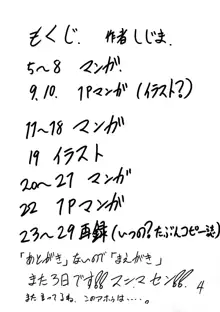 もくじ. 作者しじま.
5～8 マンガ.
9.10. 1Pマンガ(イラスト?)
11～18 マンガ
19 イラスト
20～21 マンガ
22 1Pマンガ
23～29 再録(いつの?たぶんコピー誌)
「あとがき」ないので「まえがき」
また3日です!!スンマセン!!.
また言ってるね、このアホゥは・・・・。
4